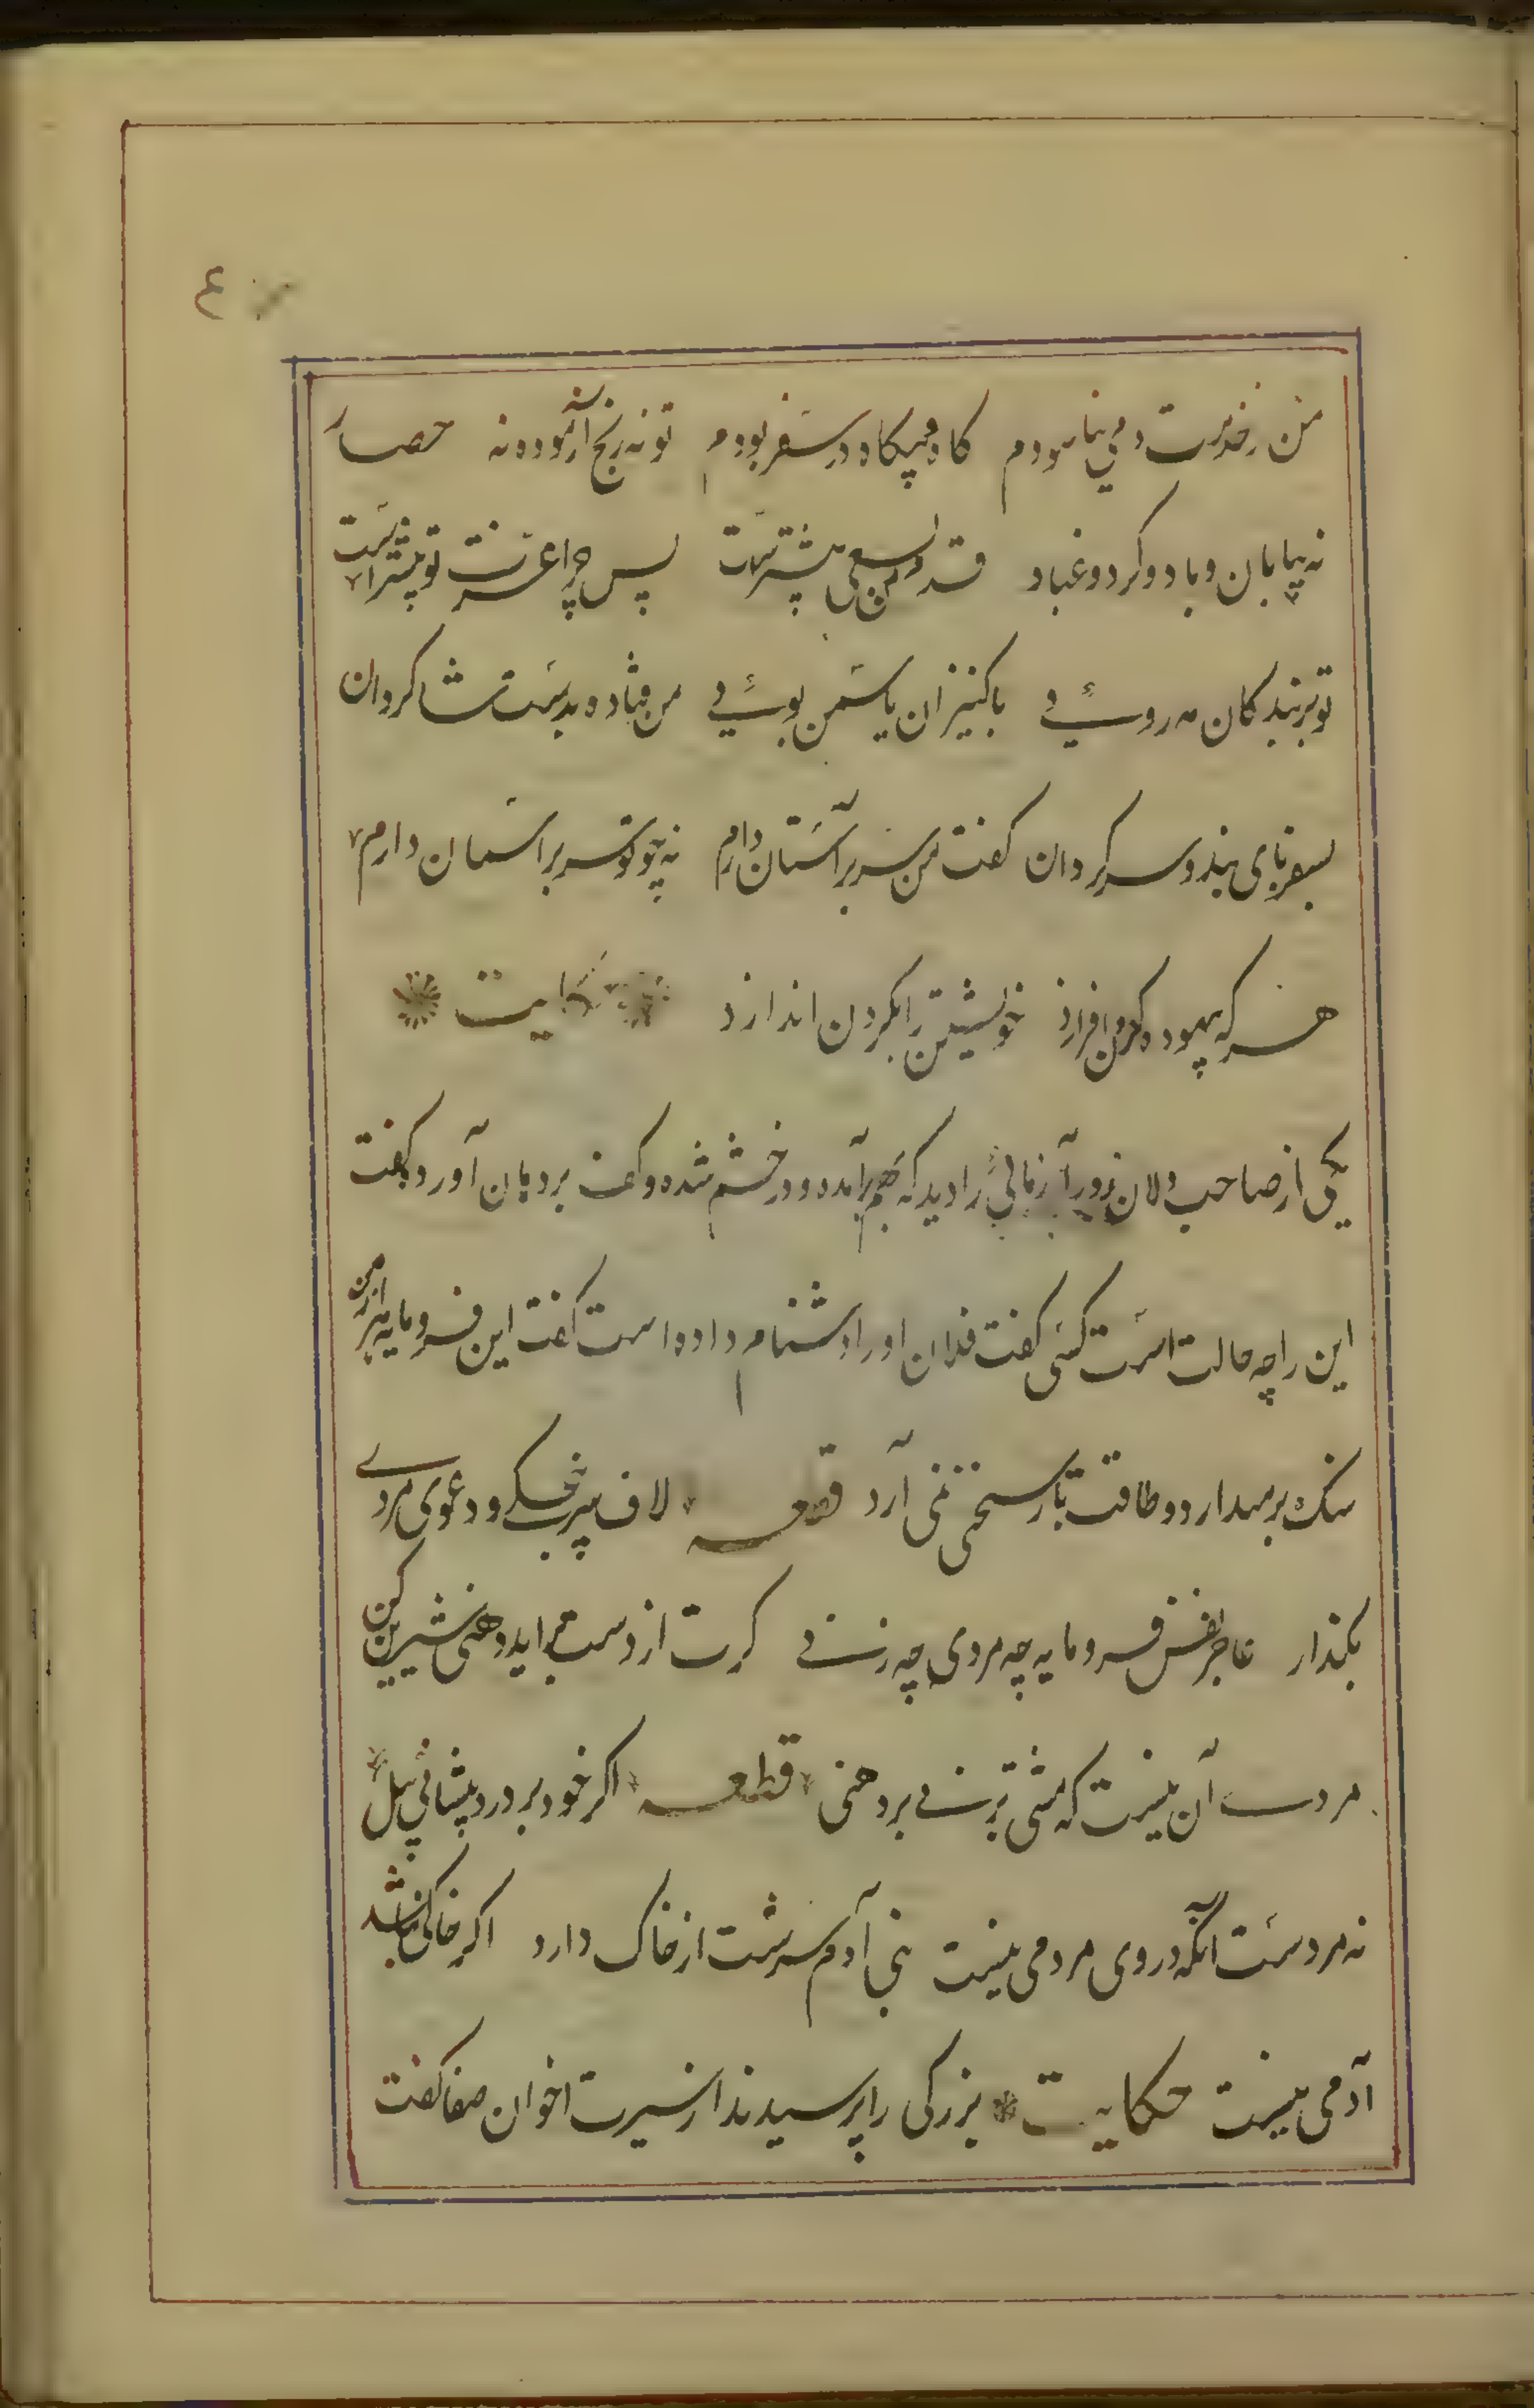 من ز خدمت دمی نیاسودم کاه و بیکاه در سفر بودم تو نه رنج آزموده نه حصار
نه بیابان و باد و کرد و غبار قدم من بسعی پیشترست پس چرا عزت تو بیشترست
تو بر بندکان مه روئی با کنیزان یاسمن بوئی من فتاده بدست شاکردان
بسفر پای بند و سرکردان کفت من سر بر آستان دارم نه چو تو سر بر آسمان دارم
هر که بیهوده کردن افرازد خویشتن را بکردن اندازد حکایت
یکی از صاحب دلان زور آزمائی را دید که بهم برآمده و در خشم شده و کف بر دهان آورده کفت
این را چه حالت است کسی کفت فلان او را دشنام داده است کفت این فرومایه هزار من
سنک بر میدارد و طاقت یک سخن نمی آرد قطعه لاف سرپنجکی و دعوی مردی
بکذار عاجز نفس فرومایه چه مردی چه زنی کرت از دست برآید دهنی شیرین کن
مردی آن نیست که مشتی بزنی بر دهنی قطعه اکر خود بر درد پیشانی پیل
نه مردست آنکه در وی مردمی نیست بنی آدم سرشت از خاک دارد اکر خاکی نباشد
آدمی نیست حکایت بزرکی را پرسیدند از سیرت اخوان صفا کفت